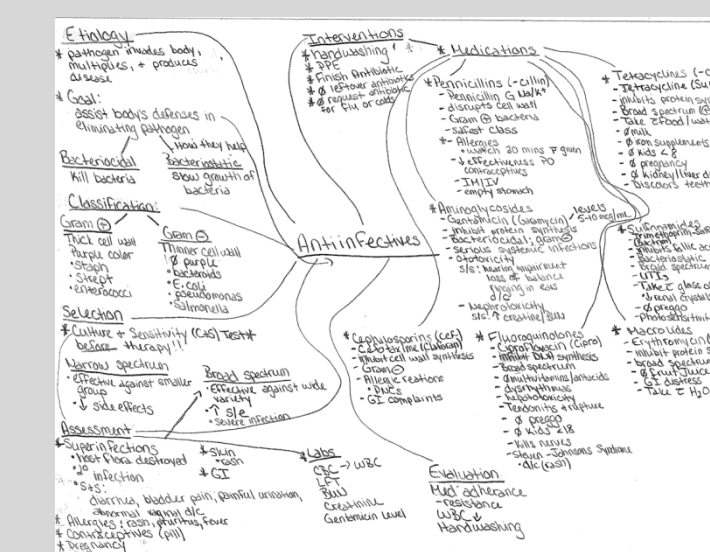 Etiology
* pathogen invades body,
multiplies, + produces
disease
* Goal:
assist body's defenses in
eliminating pathogen
How they help
Bacteriocidal
Kill bacteria
Bacteriostatic
slow growth of
bacteria
Classification:
Gram ⊕
Thick cell wall
Purple color
• Staph
• Strept
• enterococci
Gram ⊖
Thinner cell wall
Ø purple
• bacteroids
• E.coli
• pseudomonas
• Salmonella
Selection
* Culture + Sensitivity (C&S) Test *
before therapy!!
Narrow spectrum
• effective against smaller
group
• ↓ side effects
Broad spectrum
• Effective against wide
variety
• ↑ s/e
• severe infection
Assessment
* Superinfections
• host flora destroyed
• 2°
infection
• S+S:
diarrhea, bladder pain, painful urination,
abnormal vaginal d/c
* Allergies: rash, pruritus, fever
* Contraceptives (pill)
* Pregnancy
* Skin
• rash
* GI
* Labs
CBC → WBC
LFT
BUN
Creatinine
Gentamicin level
Antiinfectives
Interventions
* handwashing!
* PPE
* Finish Antibiotic
* Ø leftover antibiotics
* Ø request antibiotic
for flu or colds
* Medications
* Pennicillins (-cillin)
- Pennicillin G Na/K+
- disrupts cell wall
- Gram ⊕ bacteria
- safest class
* - Allergies
• watch 30 mins p̄ given
- ↓ effectiveness PO
contraceptives
- IM/IV
- empty stomach
* Aminoglycosides
- Gentamicin (Garamycin)
levels
5-10 mcg/mL
- inhibit protein synthesis
- Bacteriocidal; gram ⊖
- Serious systemic infections
- Ototoxicity
s/s: hearing impairment
loss of balance
ringing in ears
d/c
- Nephrotoxicity
s/s: ↑ creatine/BUN
* Cephulosporins (cef-)
- Cefotaxime (Claforan)
- inhibit cell wall synthesis
- Gram ⊖
- Allergic reations
• PNCs
- GI complaints
* Fluoroquinolones
- Ciprofloxacin (Cipro)
- inhibit DNA synthesis
- Broad spectrum
- Ø multivitamins/antacids
- dysrhythmias
- hepatotoxicity
- Tendonitis + rupture
Ø preggo
Ø kids <18
- Kills nerves
- Steven-Johnsons Syndrome
• d/c (rash)
Evaluation
Med adherance
- resistance
WBC ↓
Handwashing
* Tetracyclines (-c
- Tetracycline (Su
- inhibits protein syn
- Broad spectrum
- Take c̄ food/wat
- Ø milk
- Ø iron supplements
- Ø kids < 8
- Ø pregnancy
- Ø kidney/liver d
- Discolors teeth
* Sulfonamides
(Bactrim)
- inhibits folic ac
- Bacteriostatic
- Broad spectrum
- UTIs
- Take c̄ glass o
• renal crystals
- Ø preggo
- Photosensitivit
* Macrolides
- Erythromycin (
- inhibit protein s
- broad spectru
- Ø fruit juice
- GI distress
- Take c̄ H₂O